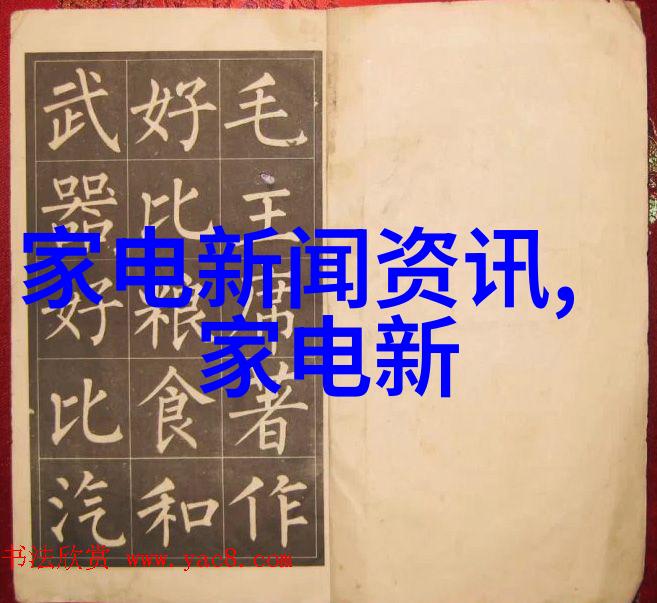 毛主席著作
好比粮食和
武器好比汽
家电新闻资讯,
家电新
书法欣赏 www.yac8.com